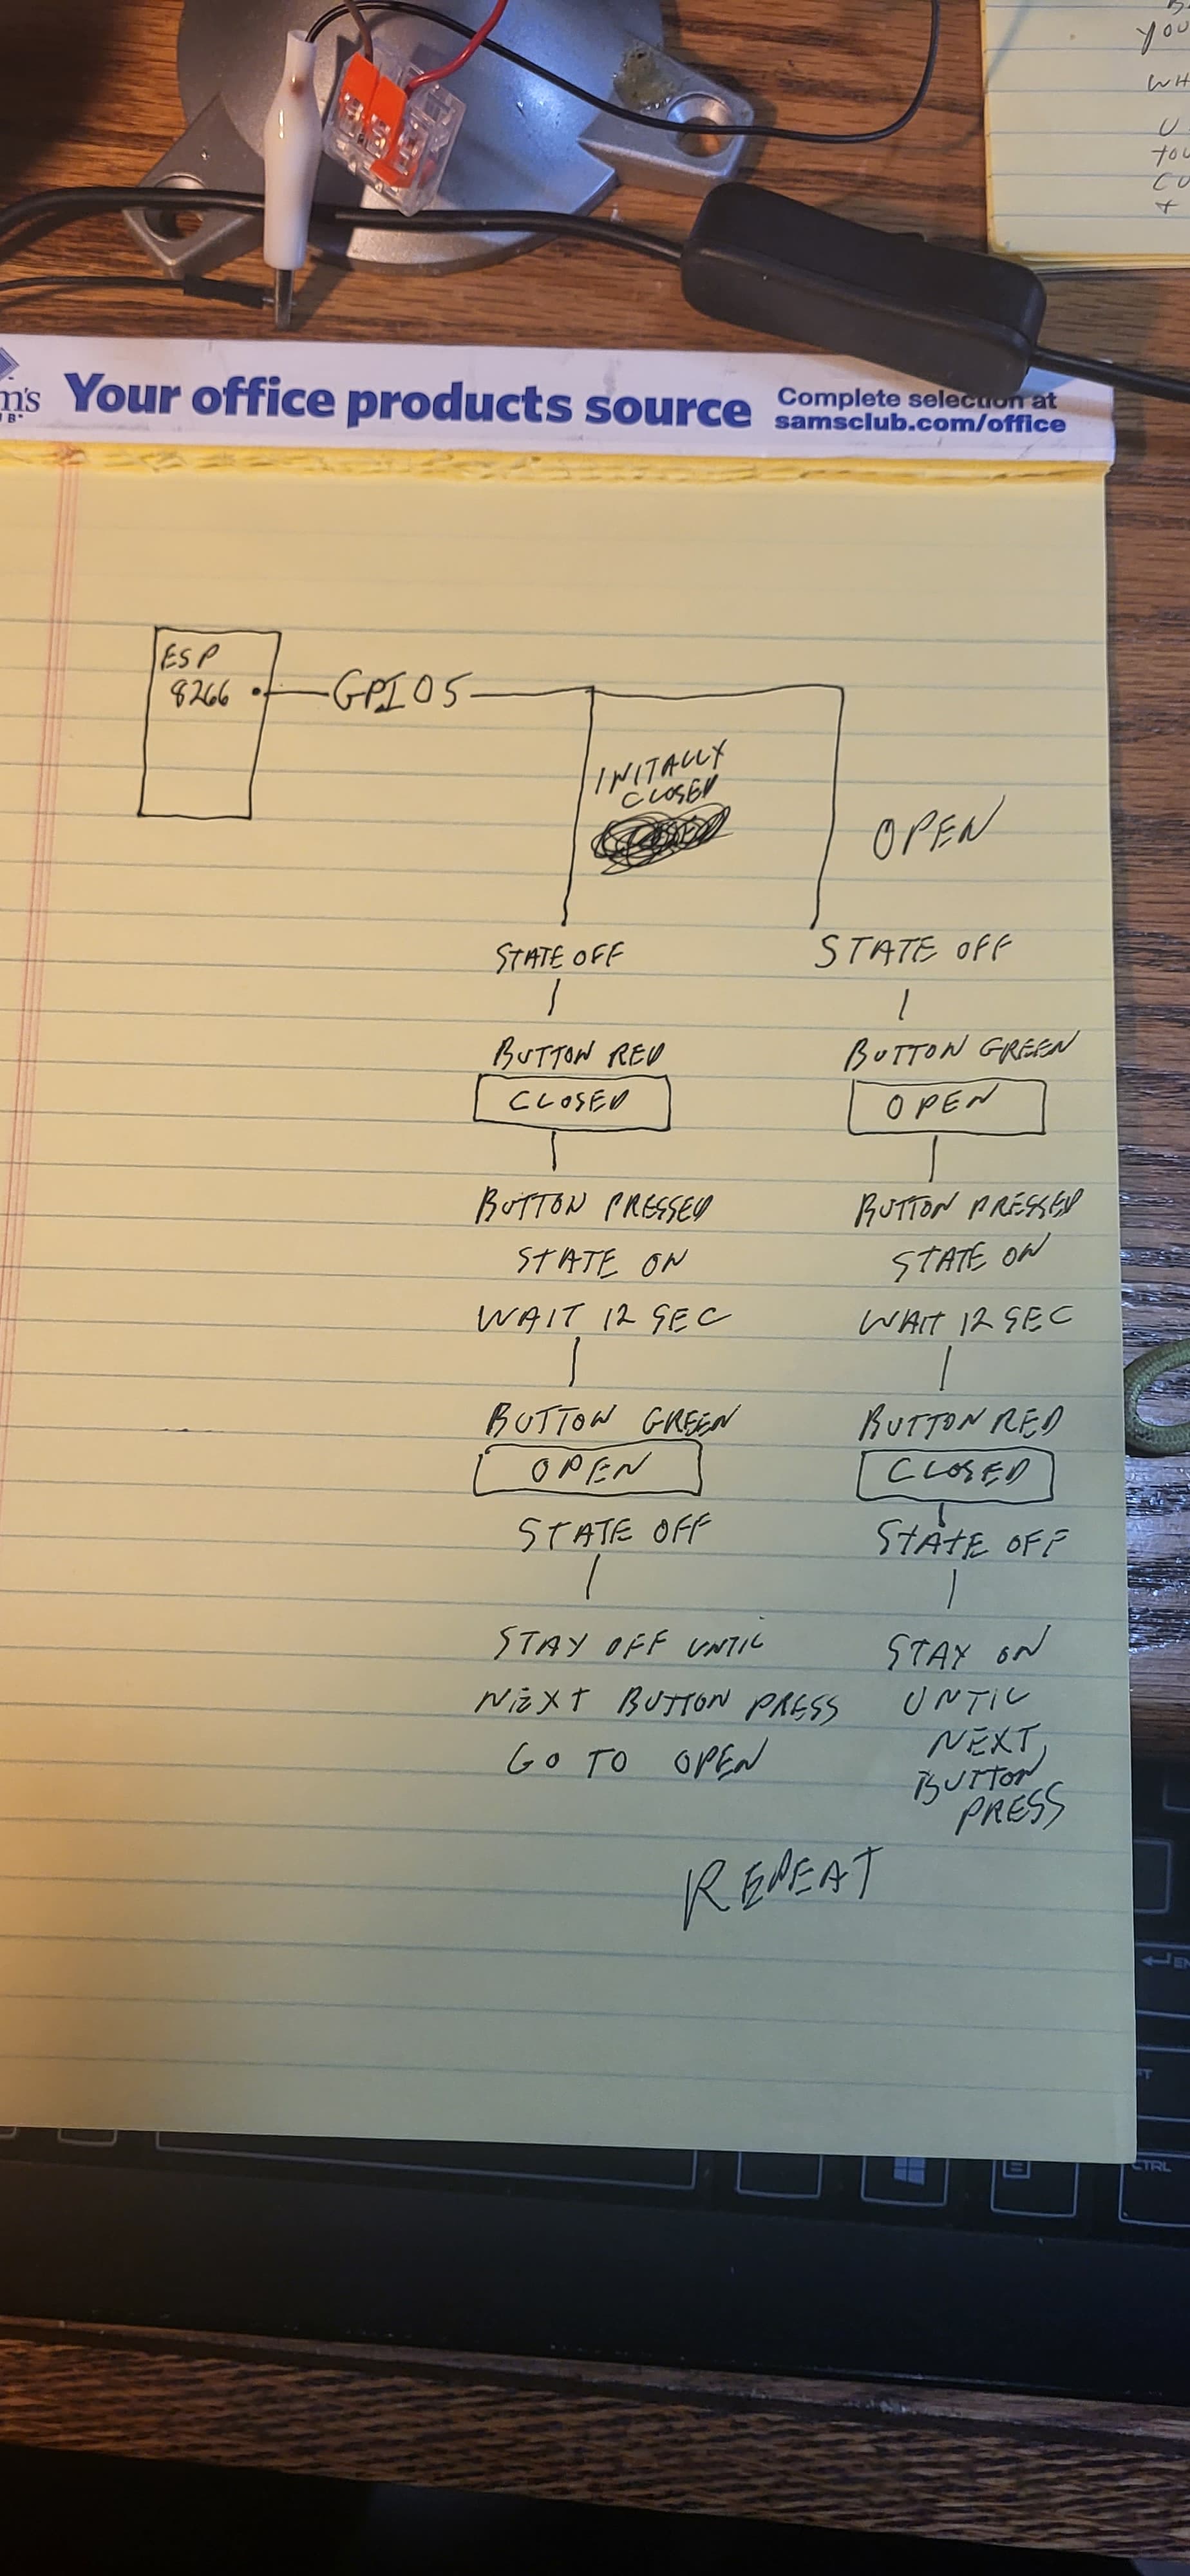 YOU
WH
U
TOU
CU
+
m's
B
Your office products source
Complete selection at
samsclub.com/office
ESP
8266
GPIO5
INITALLY
CLOSED
OPEN
STATE OFF
BUTTON RED
CLOSED
BUTTON PRESSED
STATE ON
WAIT 12 SEC
BUTTON GREEN
OPEN
STATE OFF
STAY OFF UNTIL
NEXT BUTTON PRESS
GO TO OPEN
STATE OFF
BUTTON GREEN
OPEN
BUTTON PRESSED
STATE ON
WAIT 12 SEC
BUTTON RED
CLOSED
STATE OFF
STAY ON
UNTIL
NEXT
BUTTON
PRESS
REPEAT
EN
CTRL